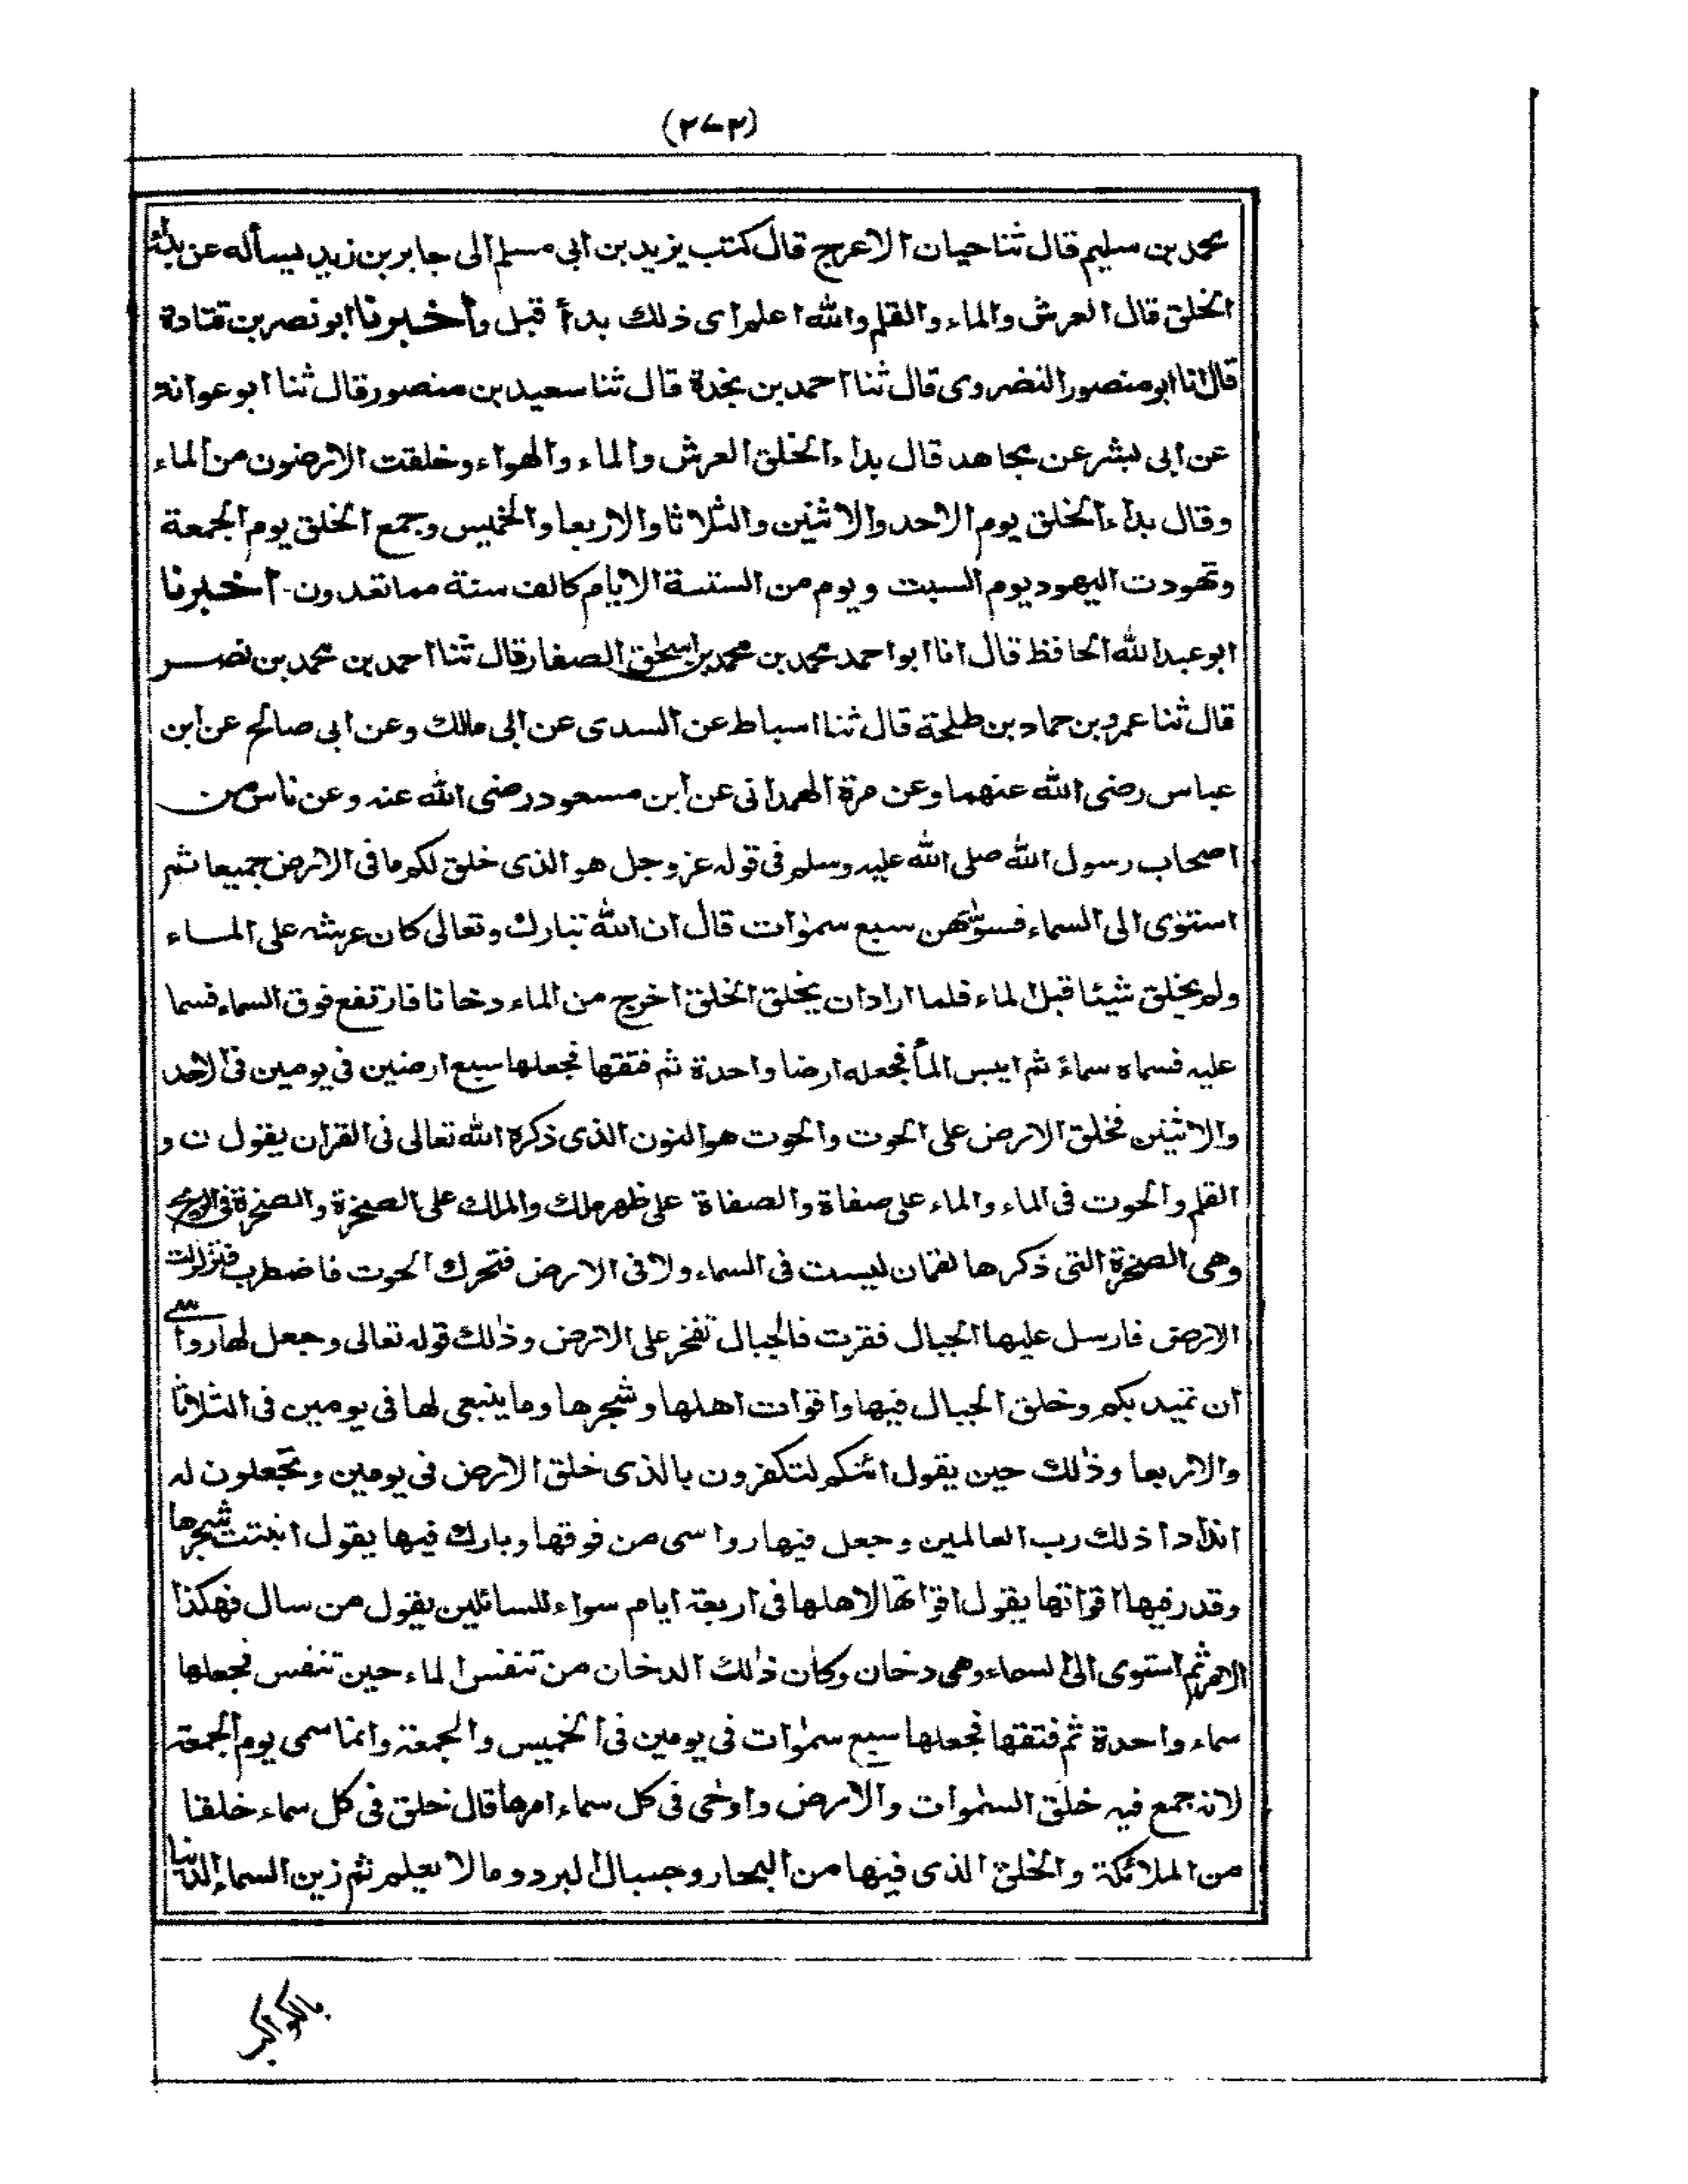 (٢٧٢)
محمد بن سليم قال ثنا حيان الاعرج قال كتب يزيد بن ابى مسلم الى جابر بن زيد يسأله عن بدء
الخلق قال العرش والماء والقلم والله اعلم اى ذلك بدأ قبل وأخبرنا ابو نصر بن قتادة
قال انا ابو منصور النضروى قال ثنا احمد بن نجدة قال ثنا سعيد بن منصور قال ثنا ابو عوانة
عن ابى بشر عن مجاهد قال بدأ ء الخلق العرش والماء والهواء وخلقت الارضون من الماء
وقال بدأ ء الخلق يوم الاحد والاثنين والثلاثا والاربعا والخميس وجمع الخلق يوم الجمعة
وتهودت اليهود يوم السبت ويوم من الستة الايام كالف سنة مما تعدون - اخبرنا
ابو عبد الله الحافظ قال انا ابو احمد محمد بن محمد بن اسحٰق الصفار قال ثنا احمد بن محمد بن نصر
قال ثنا عمرو بن حماد بن طلحة قال ثنا اسباط عن السدى عن ابى مالك وعن ابى صالح عن ابن
عباس رضى الله عنهما وعن مرة الهمدانى عن ابن مسعود رضى الله عنه وعن ناس من
اصحاب رسول الله صلى الله عليه وسلم فى قوله عز وجل هو الذى خلق لكم ما فى الارض جميعا ثم
استوٰى الى السماء فسوّٰىهن سبع سمٰوات قال ان الله تبارك وتعالى كان عرشه على الماء
ولم يخلق شيئا قبل الماء فلما اراد ان يخلق الخلق اخرج من الماء دخانا فارتفع فوق السماء فسما
عليه فسماه سماءً ثم ايبس المأ فجعله ارضا واحدة ثم فتقها فجعلها سبع ارضين فى يومين فى الاحد
والاثنين فخلق الارض على الحوت والحوت هو النون الذى ذكره الله تعالى فى القران يقول ن و
القلم والحوت فى الماء والماء على صفاة والصفاة على ظهر ملك والملك على الصخرة والصخرة فى الريح
وهى الصخرة التى ذكرها لقمان ليست فى السماء ولا فى الارض فتحرك الحوت فاضطرب فتزلزلت
الارض فارسل عليها الجبال فقرت فالجبال تفخر على الارض وذٰلك قوله تعالى وجعل لها رواسى
ان تميد بكم وخلق الجبال فيها واقوات اهلها وشجرها وما ينبغى لها فى يومين فى الثلاثا
والاربعا وذٰلك حين يقول ائنكم لتكفرون بالذى خلق الارض فى يومين وتجعلون له
اندادا ذلك رب العالمين وجعل فيها رواسى من فوقها وبارك فيها يقول انبتت شجرها
وقدر فيها اقواتها يقول اقواتها لاهلها فى اربعة ايام سواء للسائلين يقول من سال فهكذا
الامر ثم استوى الى السماء وهى دخان وكان ذٰلك الدخان من تنفس الماء حين تنفس فجعلها
سماء واحدة ثم فتقها فجعلها سبع سمٰوات فى يومين فى الخميس والجمعة وانما سمى يوم الجمعة
لانه جمع فيه خلق السمٰوات والارض واوحٰى فى كل سماء امرها قال خلق فى كل سماء خلقا
من الملائكة والخلق الذى فيها من البحار وجبال البرد وما لا يعلم ثم زين السماء الدنيا
بالكواكب